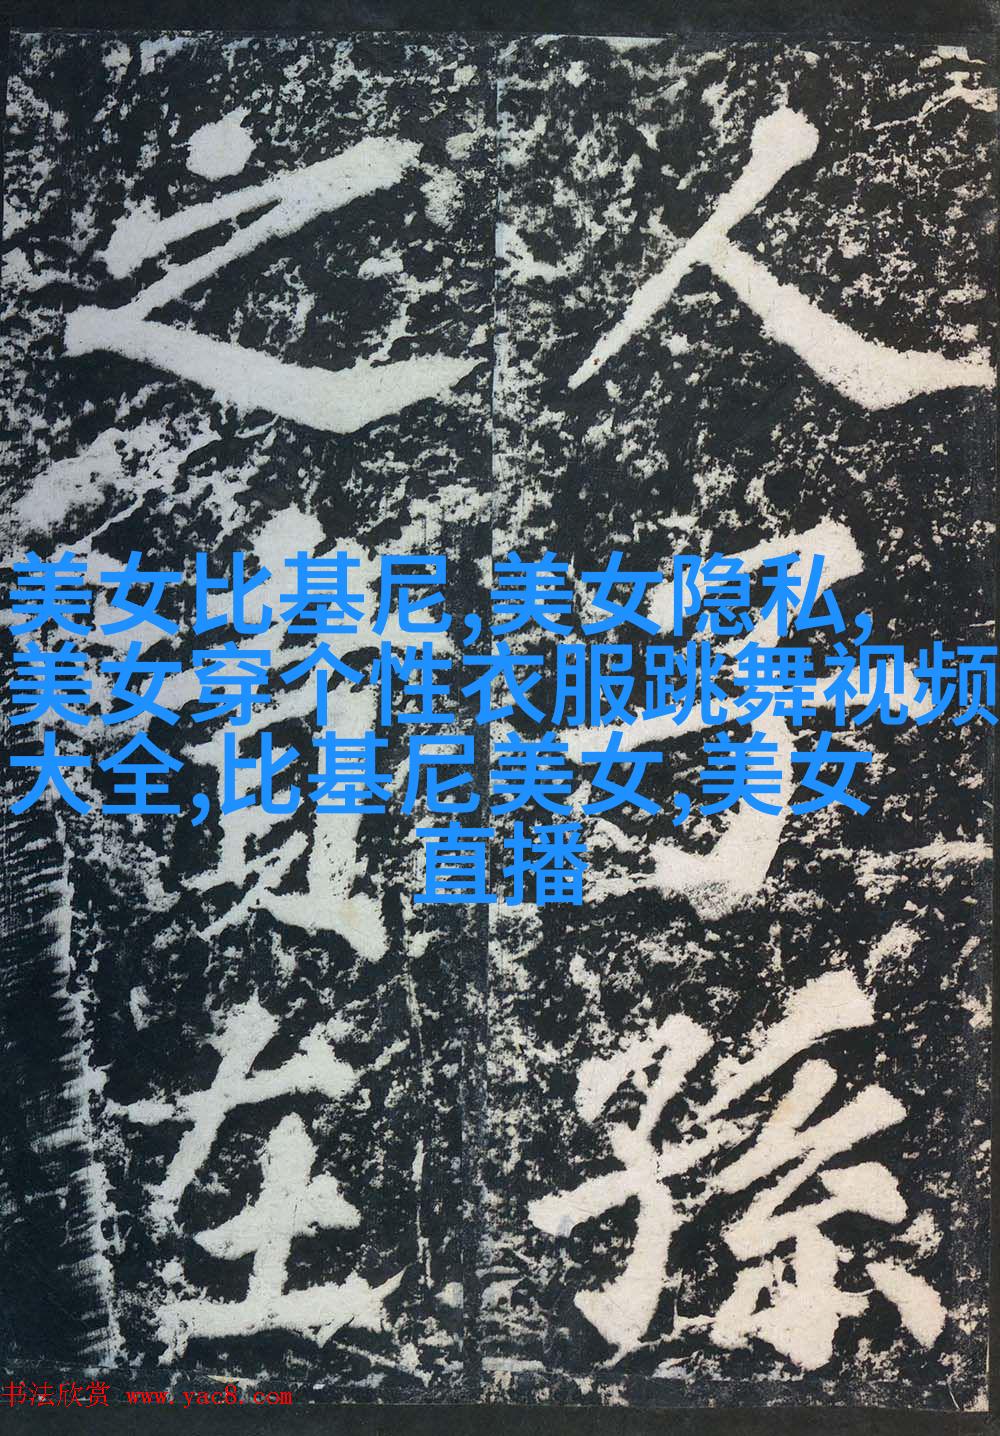 人子孫
之在
美女比基尼,美女隐私,
美女穿个性衣服跳舞视频
大全,比基尼美女,美女
直播
书法欣赏 www.yac8.com